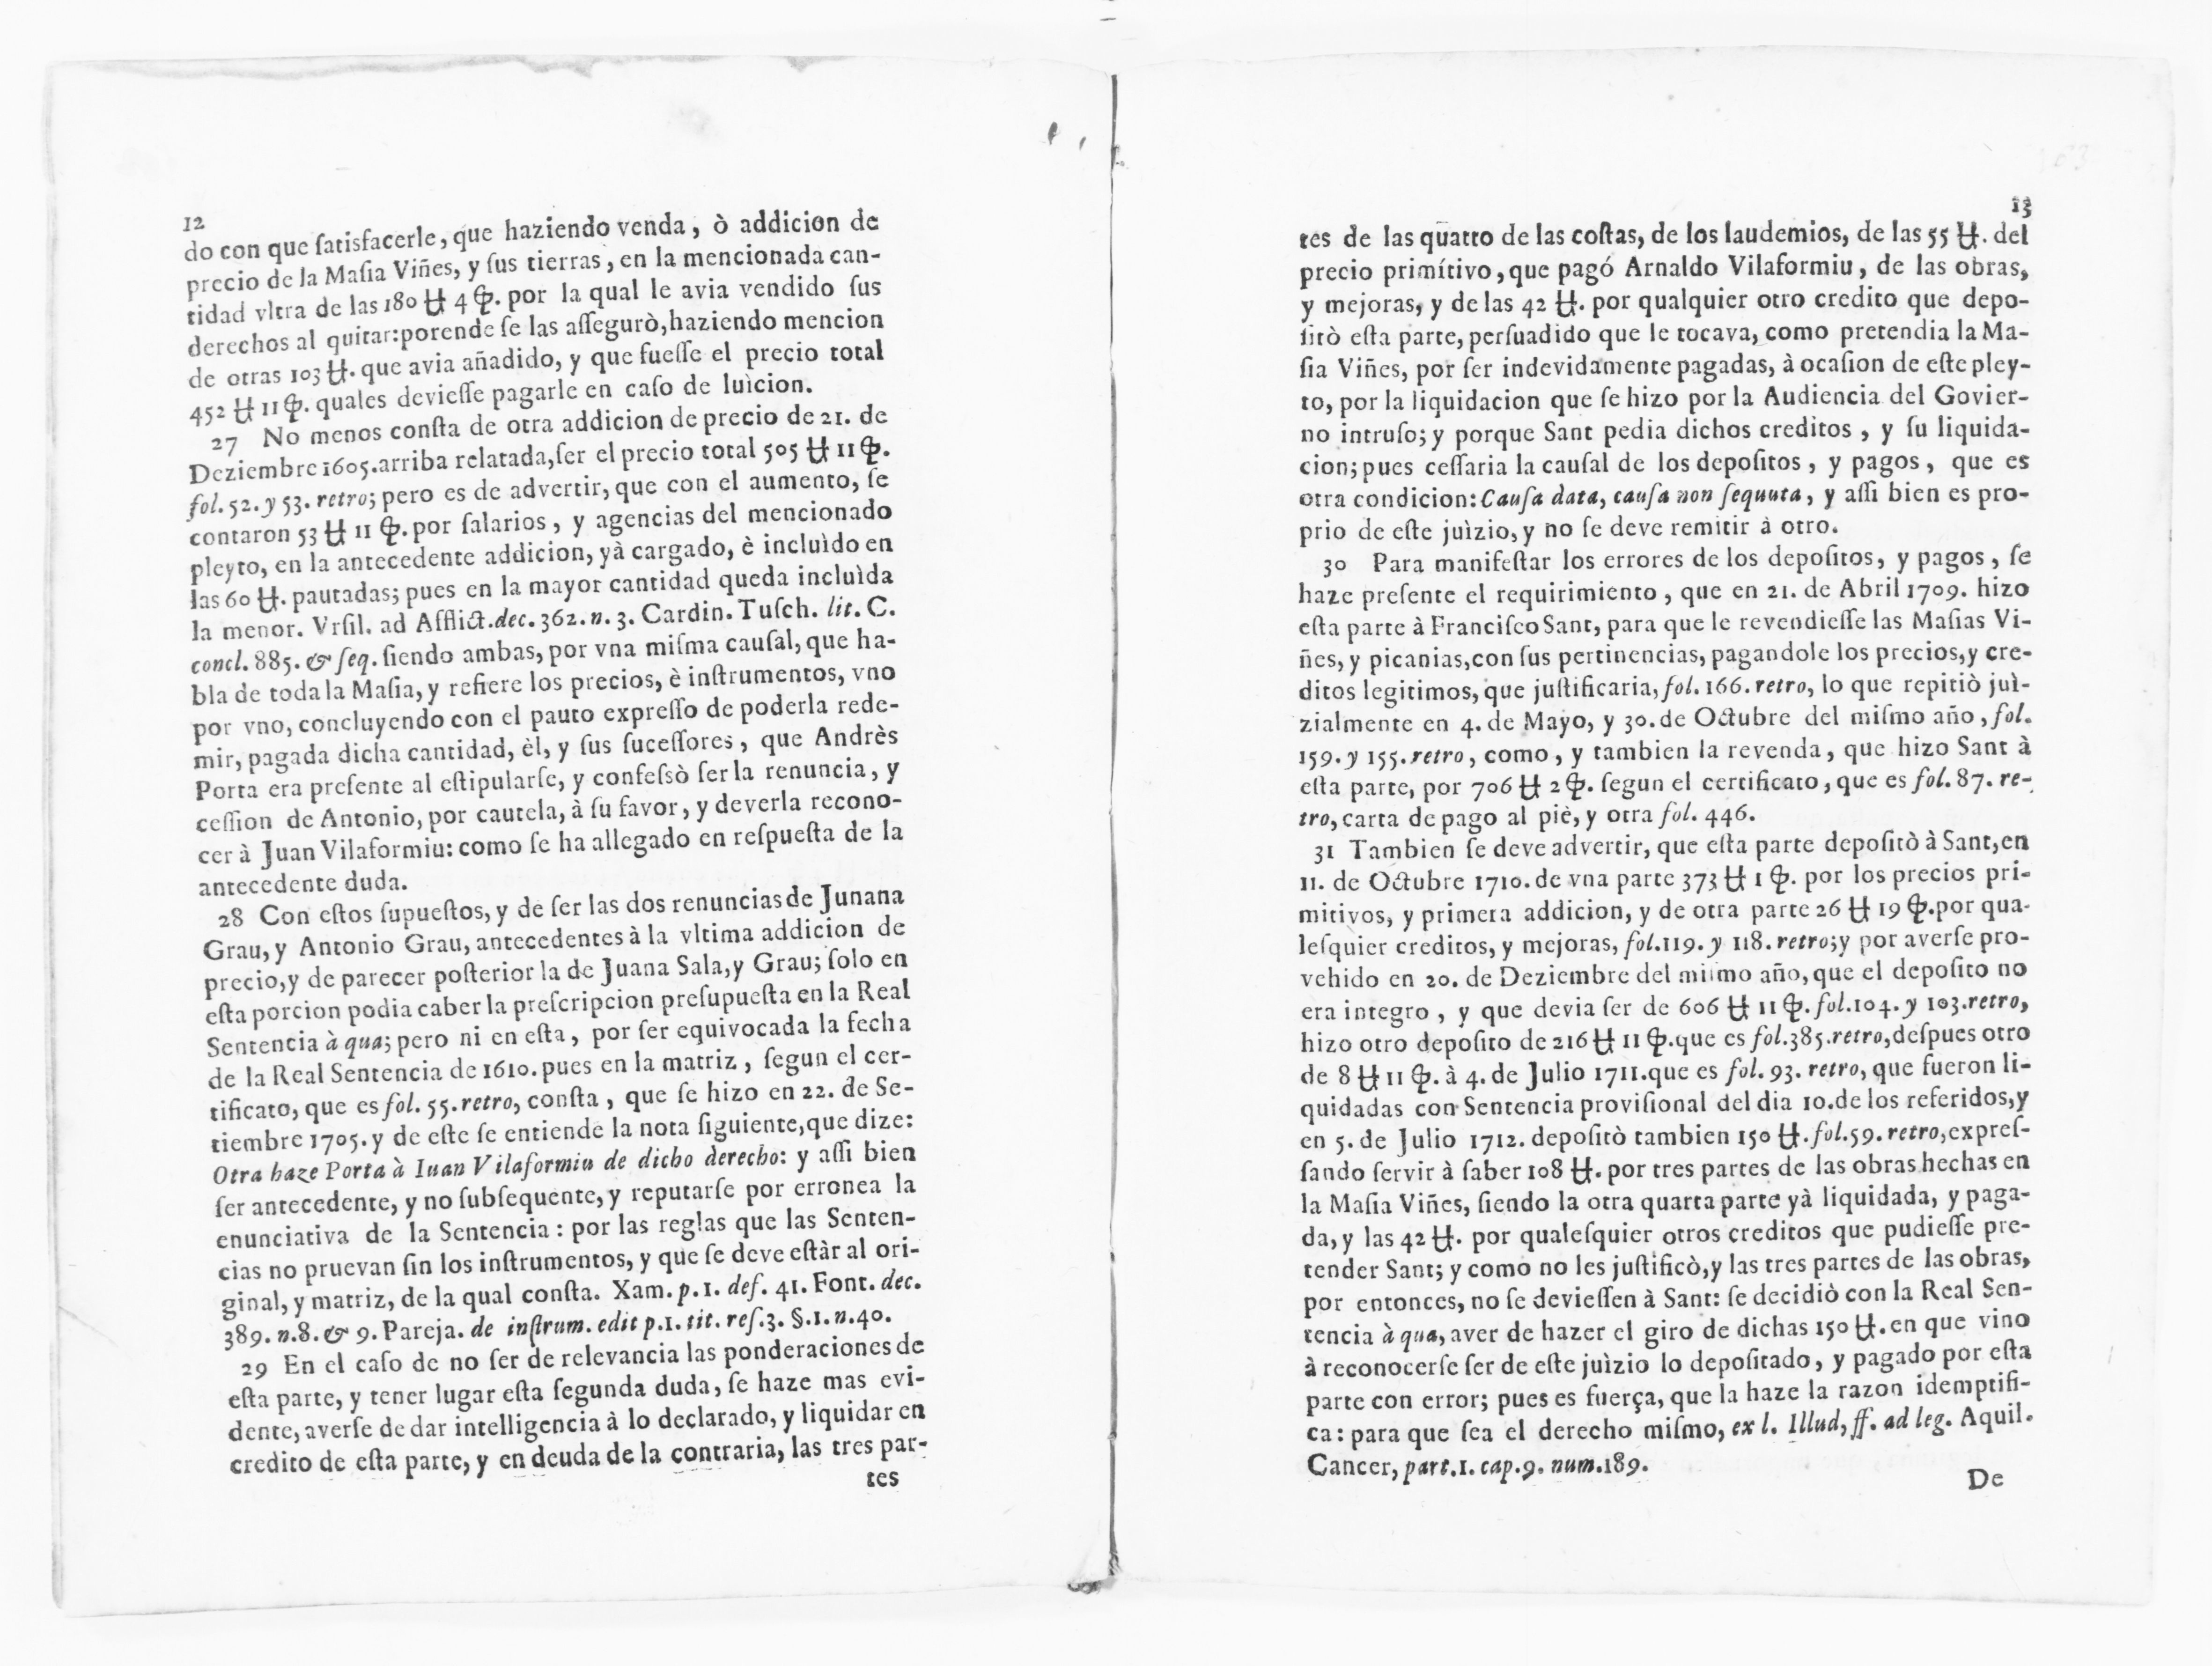 12
do con que ſatisfacerle, que haziendo venda, ò addicion de
precio de la Maſia Viñes, y ſus tierras, en la mencionada can-
tidad vltra de las 180 ꞎ 4 ꝑ. por la qual le avia vendido ſus
derechos al quitar:porende ſe las aſſegurò,haziendo mencion
de otras 103 ꞎ. que avia añadido, y que fueſſe el precio total
452 ꞎ 11 ꝑ. quales devieſſe pagarle en caſo de luìcion.
27 No menos conſta de otra addicion de precio de 21. de
Deziembre 1605.arriba relatada,ſer el precio total 505 ꞎ 11 ꝑ.
fol. 52. y 53. retro; pero es de advertir, que con el aumento, ſe
contaron 53 ꞎ 11 ꝑ. por ſalarios, y agencias del mencionado
pleyto, en la antecedente addicion, yà cargado, è incluìdo en
las 60 ꞎ. pautadas; pues en la mayor cantidad queda incluìda
la menor. Vrſil. ad Afflict.dec. 362. n. 3. Cardin. Tuſch. lit. C.
concl. 885. & ſeq. ſiendo ambas, por vna miſma cauſal, que ha-
bla de toda la Maſia, y refiere los precios, è inſtrumentos, vno
por vno, concluyendo con el pauto expreſſo de poderla rede-
mir, pagada dicha cantidad, èl, y ſus ſuceſſores, que Andrès
Porta era preſente al eſtipularſe, y confeſsò ſer la renuncia, y
ceſſion de Antonio, por cautela, à ſu favor, y deverla recono-
cer à Juan Vilaformiu: como ſe ha allegado en reſpueſta de la
antecedente duda.
28 Con eſtos ſupueſtos, y de ſer las dos renuncias de Junana
Grau, y Antonio Grau, antecedentes à la vltima addicion de
precio,y de parecer poſterior la de Juana Sala,y Grau; ſolo en
eſta porcion podia caber la preſcripcion preſupueſta en la Real
Sentencia à qua; pero ni en eſta, por ſer equivocada la fecha
de la Real Sentencia de 1610. pues en la matriz, ſegun el cer-
tificato, que es fol. 55. retro, conſta, que ſe hizo en 22. de Se-
tiembre 1705. y de eſte ſe entiende la nota ſiguiente,que dize:
Otra haze Porta à Iuan Vilaformiu de dicho derecho: y aſſi bien
ſer antecedente, y no ſubſequente, y reputarſe por erronea la
enunciativa de la Sentencia: por las reglas que las Senten-
cias no pruevan ſin los inſtrumentos, y que ſe deve eſtàr al ori-
ginal, y matriz, de la qual conſta. Xam. p. 1. def. 41. Font. dec.
389. n.8. & 9. Pareja. de inſtrum. edit p.1. tit. reſ.3. §.1. n.40.
29 En el caſo de no ſer de relevancia las ponderaciones de
eſta parte, y tener lugar eſta ſegunda duda, ſe haze mas evi-
dente, averſe de dar intelligencia à lo declarado, y liquidar en
credito de eſta parte, y en deuda de la contraria, las tres par-
tes
13
tes de las quatro de las coſtas, de los laudemios, de las 55 ꞎ. del
precio primítivo, que pagó Arnaldo Vilaformiu, de las obras,
y mejoras, y de las 42 ꞎ. por qualquier otro credito que depo-
ſitò eſta parte, perſuadido que le tocava, como pretendia la Ma-
ſia Viñes, por ſer indevidamente pagadas, à ocaſion de eſte pley-
to, por la liquidacion que ſe hizo por la Audiencia del Govier-
no intruſo; y porque Sant pedia dichos creditos, y ſu liquida-
cion; pues ceſſaria la cauſal de los depoſitos, y pagos, que es
otra condicion: Cauſa data, cauſa non ſequuta, y aſſi bien es pro-
prio de eſte juìzio, y no ſe deve remitir à otro.
30 Para manifeſtar los errores de los depoſitos, y pagos, ſe
haze preſente el requirimiento, que en 21. de Abril 1709. hizo
eſta parte à Franciſco Sant, para que le revendieſſe las Maſias Vi-
ñes, y picanias,con ſus pertinencias, pagandole los precios,y cre-
ditos legitimos, que juſtificaria, fol. 166. retro, lo que repitiò juì-
zialmente en 4. de Mayo, y 30. de Octubre del miſmo año, fol.
159. y 155. retro, como, y tambien la revenda, que hizo Sant à
eſta parte, por 706 ꞎ 2 ꝑ. ſegun el certificato, que es fol. 87. re-
tro, carta de pago al piè, y otra fol. 446.
31 Tambien ſe deve advertir, que eſta parte depoſitò à Sant,en
11. de Octubre 1710. de vna parte 373 ꞎ 1 ꝑ. por los precios pri-
mitivos, y primera addicion, y de otra parte 26 ꞎ 19 ꝑ.por qua-
leſquier creditos, y mejoras, fol.119. y 118. retro;y por averſe pro-
vehido en 20. de Deziembre del miſmo año, que el depoſito no
era integro, y que devia ſer de 606 ꞎ 11 ꝑ. fol.104. y 103.retro,
hizo otro depoſito de 216 ꞎ 11 ꝑ.que es fol.385.retro,deſpues otro
de 8 ꞎ 11 ꝑ. à 4. de Julio 1711.que es fol. 93. retro, que fueron li-
quidadas con Sentencia proviſional del dia 10.de los referidos,y
en 5. de Julio 1712. depoſitò tambien 150 ꞎ. fol.59. retro,expreſ-
ſando ſervir à ſaber 108 ꞎ. por tres partes de las obras hechas en
la Maſia Viñes, ſiendo la otra quarta parte yà liquidada, y paga-
da, y las 42 ꞎ. por qualeſquier otros creditos que pudieſſe pre-
tender Sant; y como no les juſtificò,y las tres partes de las obras,
por entonces, no ſe devieſſen à Sant: ſe decidiò con la Real Sen-
tencia à qua, aver de hazer el giro de dichas 150 ꞎ. en que vino
à reconocerſe ſer de eſte juìzio lo depoſitado, y pagado por eſta
parte con error; pues es fuerça, que la haze la razon idemptifi-
ca: para que ſea el derecho miſmo, ex l. Illud, ff. ad leg. Aquil.
Cancer, part.1. cap.9. num.189.
De